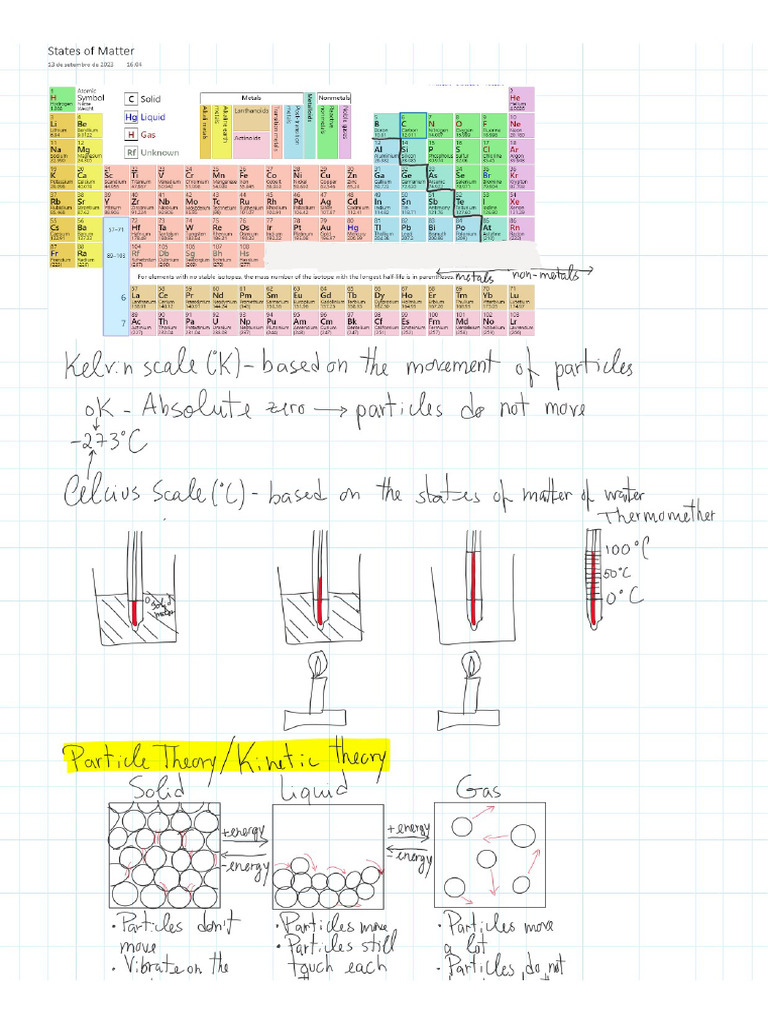 States of Matter
13 de setembro de 2023 16:04
Atomic
Symbol
Name
Weight
C Solid
Hg Liquid
H Gas
Rf Unknown
Metals
Nonmetals
Alkali metals
Alkaline earth metals
Lanthanoids
Actinoids
Transition metals
Post-transition metals
Metalloids
Reactive nonmetals
Noble gases
H He
Li Be B C N O F Ne
Na Mg Al Si P S Cl Ar
K Ca Sc Ti V Cr Mn Fe Co Ni Cu Zn Ga Ge As Se Br Kr
Rb Sr Y Zr Nb Mo Tc Ru Rh Pd Ag Cd In Sn Sb Te I Xe
Cs Ba 57–71 Hf Ta W Re Os Ir Pt Au Hg Tl Pb Bi Po At Rn
Fr Ra 89–103 Rf Db Sg Bh Hs
For elements with no stable isotopes, the mass number of the isotope with the longest half-life is in parentheses.
metals non-metals
6 La Ce Pr Nd Pm Sm Eu Gd Tb Dy Ho Er Tm Yb Lu
7 Ac Th Pa U Np Pu Am Cm Bk Cf Es Fm Md No Lr
Kelvin scale (°K) - based on the movement of particles
0K - Absolute zero → particles do not move
-273°C
Celcius Scale (°C) - based on the states of matter of water
Thermomether
100°C
50°C
0°C
Particle Theory/Kinetic theory
Solid Liquid Gas
+energy +energy
-energy -energy
• Particles don't
move
• Vibrate on the
• Particles move
• Particles still
touch each
• Particles move
a lot
• Particles do not